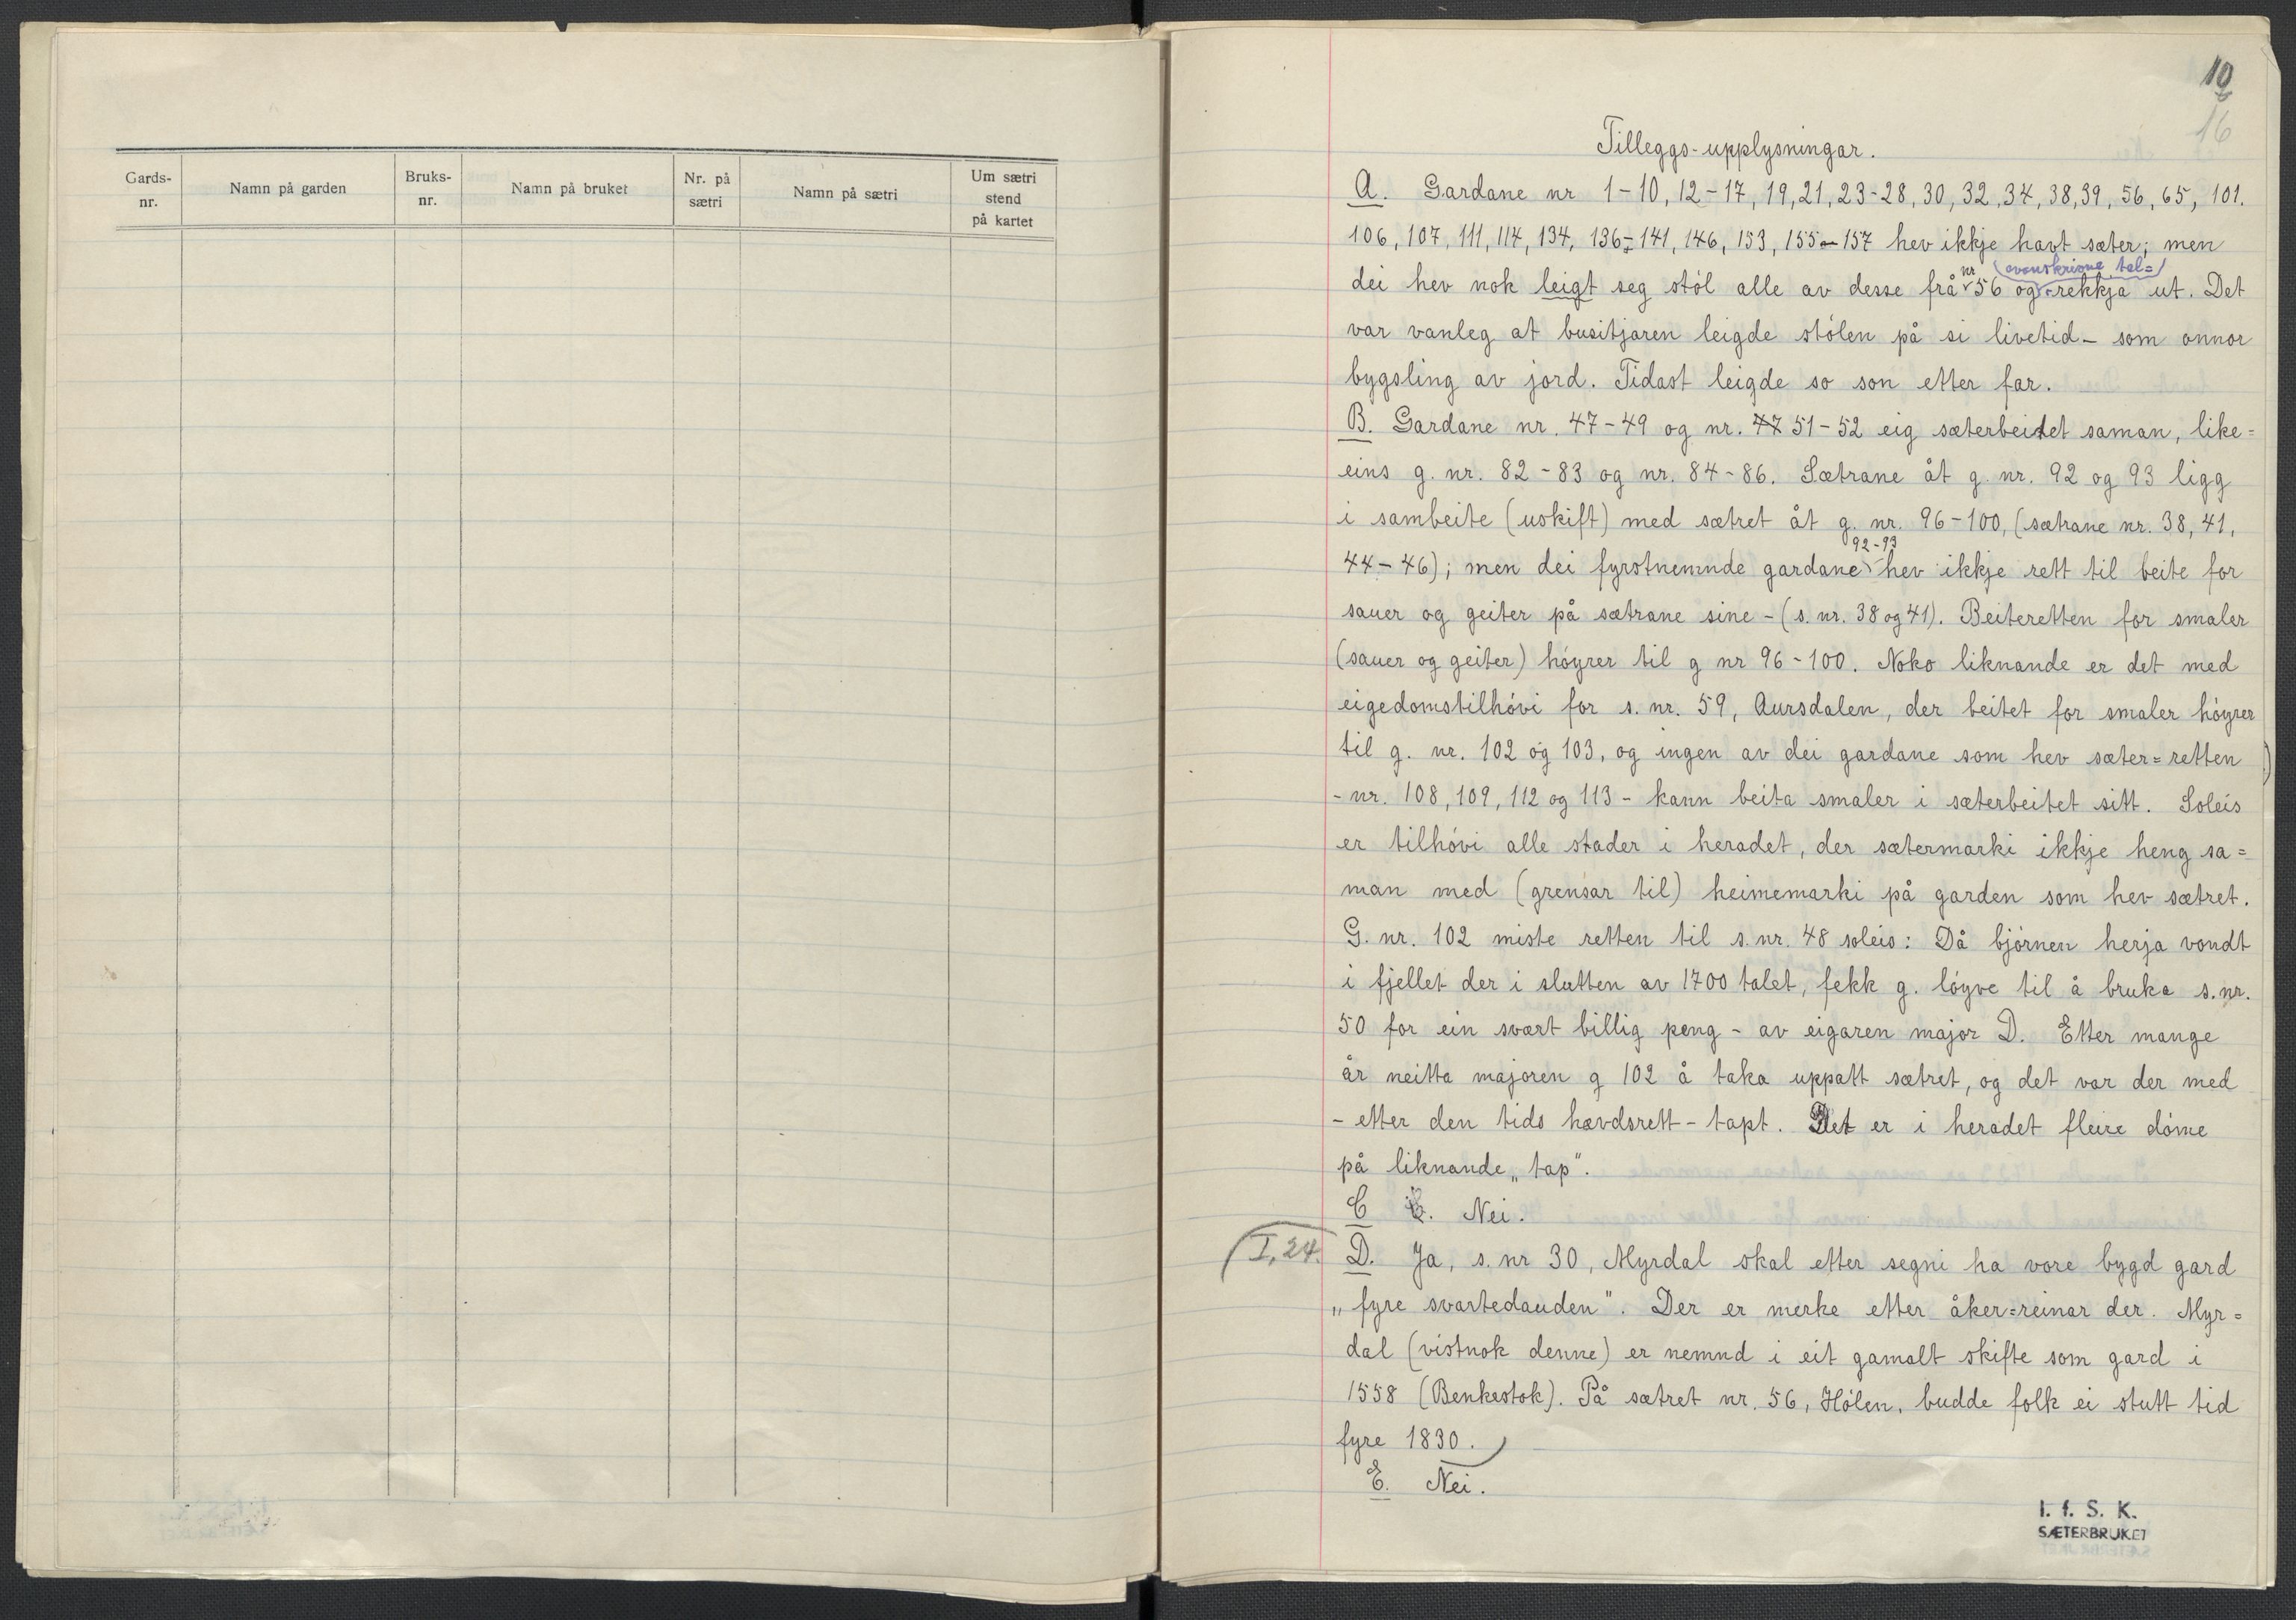 Gards-
nr.
Namn på garden
Bruks-
nr.
Namn på bruket
Nr. på
sætri
Namn på sætri
Um sætri
stend
på kartet
10
16
Tilleggs-upplysningar.
A. Gardane nr 1-10, 12-17, 19, 21, 23-28, 30, 32, 34, 38, 39, 56, 65, 101.
106, 107, 111, 114, 134, 136-141, 146, 153, 155-157 hev ikkje havt sæter; men
nr (ovanskrivne tal=)
dei hev nok leigt seg stól alle av desse frå 56 og rekkja ut. Det
var vanleg at busitjaren leigde stólen på si livetid- som onnor
bygsling av jord. Tidast leigde so son etter far.
B. Gardane nr. 47-49 og nr. 47 51-52 eig sæterbeitet saman, like=
eins g. nr. 82-83 og nr. 84-86. Sætrane åt g. nr. 92 og 93 ligg
i sambeite (uskift) med sætret åt g. nr. 96-100, (sætrane nr. 38, 41,
92-93
44-46); men dei fyrstnemnde gardane hev ikkje rett til beite for
sauer og geiter på sætrane sine - (s. nr. 38 og 41). Beiteretten for smaler
(sauer og geiter) hóyrer til g nr 96-100. Noko liknande er det med
eigedomstilhóvi for s. nr. 59, Aursdalen, der beitet for smaler hóyrer
til g. nr. 102 og 103, og ingen av dei gardane som hev sæter=retten
- nr. 108, 109, 112 og 113 - kann beita smaler i sæterbeitet sitt. Soleis
er tilhóvi alle stader i heradet, der sætermarki ikkje heng sa=
man med (grensar til) heimemarki på garden som hev sætret.
G. nr. 102 miste retten til s. nr. 48 soleis: Då bjórnen herja vondt
i fjellet der i slutten av 1700 talet, fekk g. lóyve til å bruka s. nr.
50 for ein svært billig peng - av eigaren major D. Etter mange
år neitta majoren g 102 å taka uppatt sætret, og det var der med
- etter den tids hævdsrett - tapt. Det er i heradet fleire dóme
på liknande „tap".
C . Nei.
(I, 24.
D. Ja, s. nr 30, Myrdal skal etter segni ha vore bygd gard
„fyre svartedauden". Der er merke etter åker=reinar der. Myr=
dal (vistnok denne) er nemnd i eit gamalt skifte som gard i
1558 (Benkestok). På sætret nr. 56, Hólen, budde folk ei stutt tid
fyre 1830.)
E. Nei.
I. f. S. K.
SÆTERBRUKET